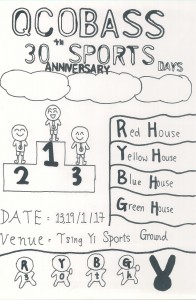 QCOBASS
30th SPORTS
ANNIVERSARY DAYS
1
2 3
Red House
Yellow House
Blue House
Green House
DATE : 18,19/1/17
Venue : Tsing Yi Sports Ground
R Y B G